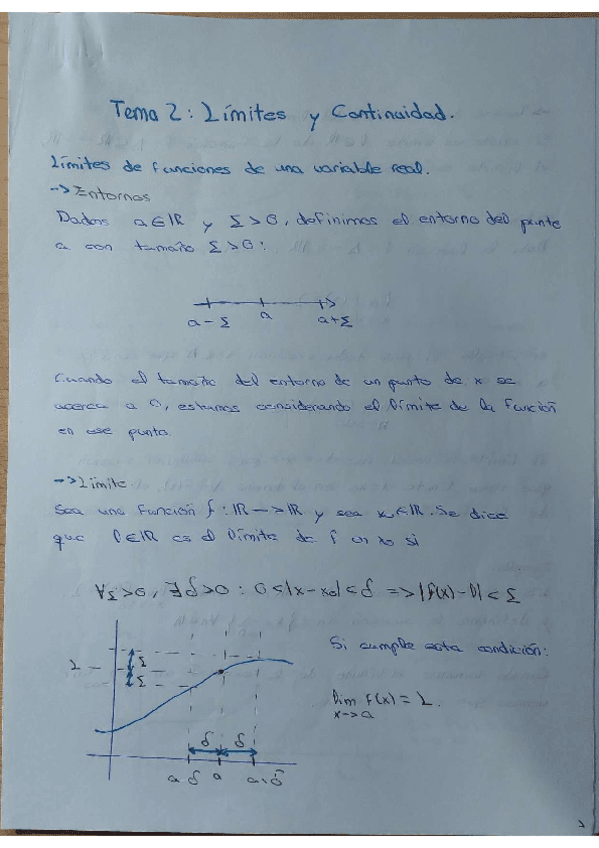 Tema 2: Límites y Continuidad.
Límites de funciones de una variable real.
-> Entornos
Dados a∈ℝ y Σ>0, definimos el entorno del punto
a con tamaño Σ>0:
a-Σ a a+Σ
Cuando el tamaño del entorno de un punto de x se
acerca a 0, estamos considerando el límite de la función
en ese punto.
-> Límite
Sea una función f: ℝ -> ℝ y sea x₀∈ℝ. Se dice
que l∈ℝ es el límite de f en x₀ si
∀Σ>0, ∃δ>0 : 0≤|x-x₀|<δ => |f(x)-l|<Σ
Si cumple esta condición:
L Σ
Σ
lim f(x) = L.
x->a
δ δ
a δ a a+δ